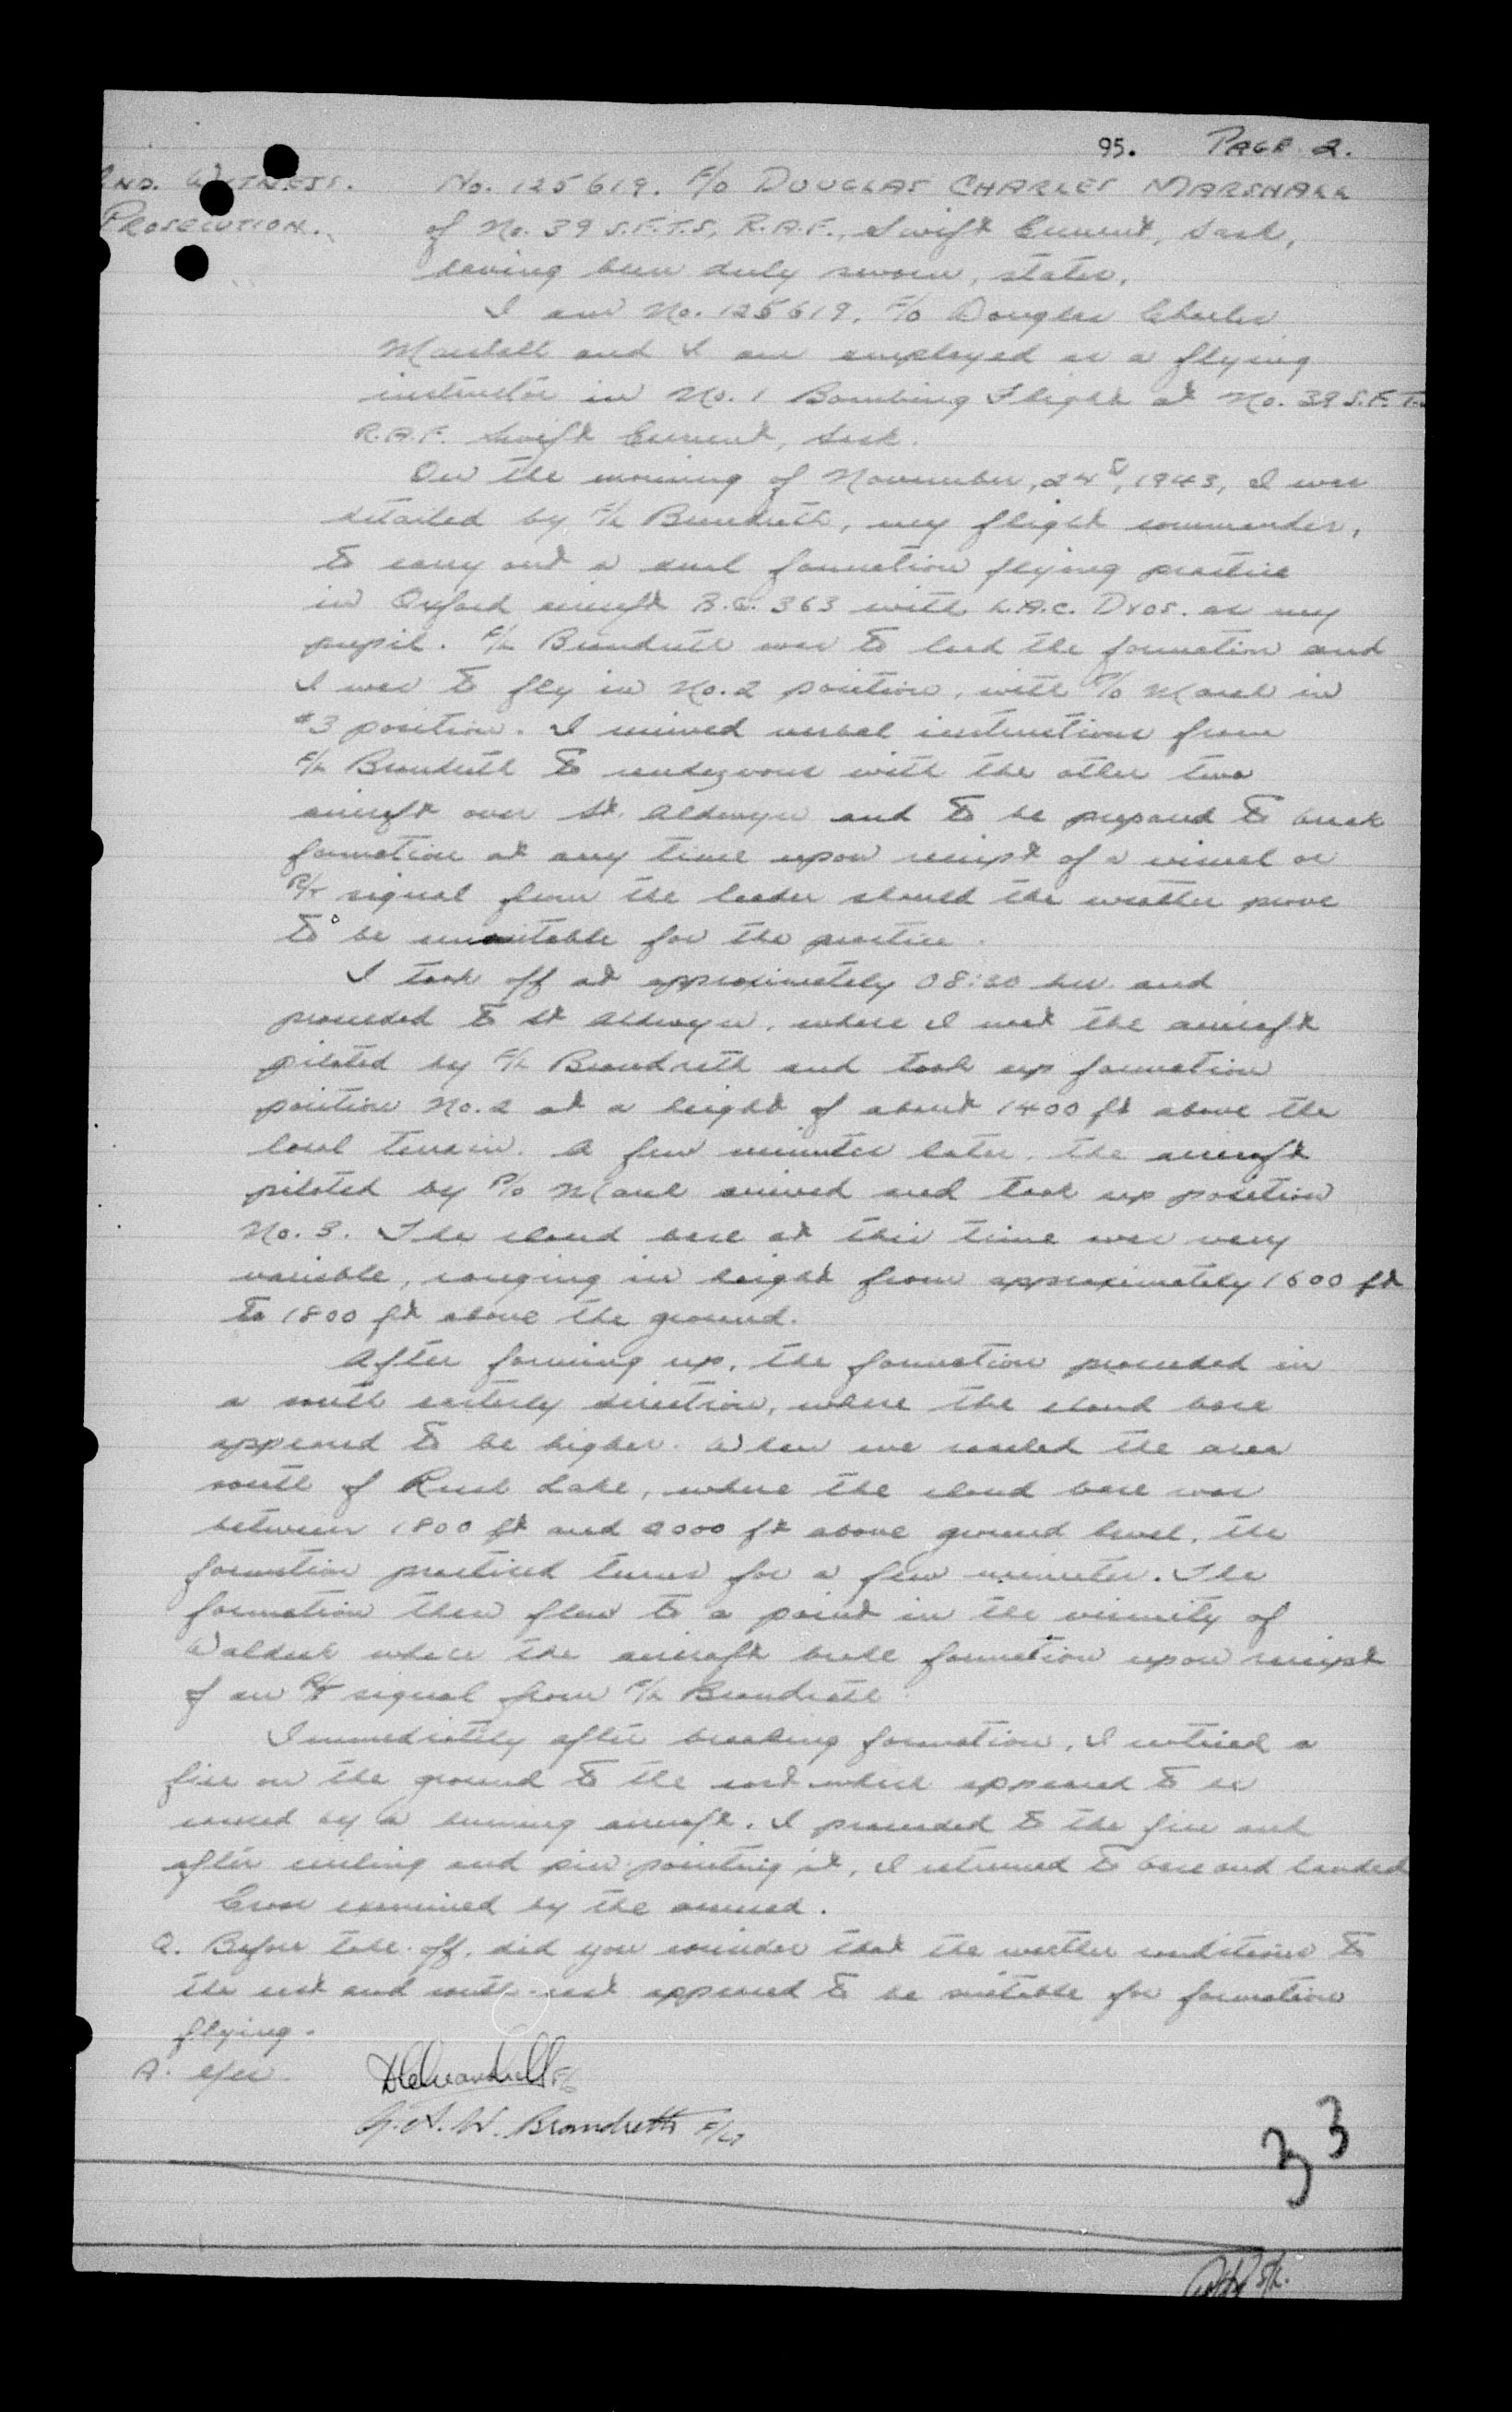 95. PAGE 2.
2ND. WITNESS. No. 125619. F/O DOUGLAS CHARLES MARSHALL
PROSECUTION. of No. 39 S.F.T.S, R.A.F., Swift Current, Sask,
having been duly sworn, states.
I am No. 125619. F/O Douglas Charles
Marshall and I am employed as a flying
instructor in No. 1 Bombing Flight at No. 39 S.F.T.S
R.A.F. Swift Current, Sask.
On the morning of November, 24th, 1943, I was
detailed by F/L Brandreth, my flight commander,
to carry out a dual formation flying practice
in Oxford aircraft B.G. 363 with L.A.C. Dyos. as my
pupil. F/L Brandreth was to lead the formation and
I was to fly in No. 2 position, with P/O Maul in
#3 position. I received verbal instructions from
F/L Brandreth to rendezvous with the other two
aircraft over St. Aldwyn and to be prepared to break
formation at any time upon receipt of a visual or
R/T signal from the leader should the weather prove
to be unsuitable for the practice.
I took off at approximately 08:30 hrs. and
proceeded to St Aldwyn, where I met the aircraft
piloted by F/L Brandreth and took up formation
position No. 2 at a height of about 1400 ft above the
local terrain. A few minutes later, the aircraft
piloted by P/O Maul arrived and took up position
No. 3. The cloud base at this time was very
variable, ranging in height from approximately 1600 ft
to 1800 ft above the ground.
After forming up, the formation proceeded in
a south easterly direction, where the cloud base
appeared to be higher. When we reached the area
south of Rush Lake, where the cloud base was
between 1800 ft and 2000 ft above ground level, the
formation practised turns for a few minutes. The
formation then flew to a point in the vicinity of
Waldeck where the aircraft broke formation upon receipt
of an R/T signal from F/L Brandreth.
Immediately after breaking formation, I noticed a
fire on the ground to the east which appeared to be
caused by a burning aircraft. I proceeded to the fire and
after circling and pin-pointing it, I returned to base and landed
Cross examined by the accused.
Q. Before take-off, did you consider that the weather conditions to
the east and south-east appeared to be suitable for formation
flying.
A. Yes.
F/O
A. W. Brandreth F/Lt
33
S/L.